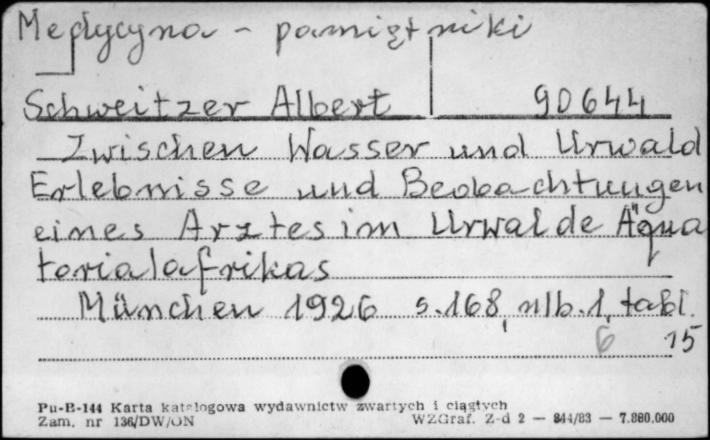 Medycyna - pamiętniki
Schweitzer Albert 90644
Zwischen Wasser und Urwald
Erlebnisse und Beobachtungen
eines Arztes im Urwalde Äqua
torialafrikas
München 1926 s. 168, nlb. 1, tabl.
6 15
Pu-B-144 Karta katalogowa wydawnictw zwartych i ciągłych
Zam. nr 136/DW/ON WZGraf. Z-d 2 — 844/83 — 7.880.000